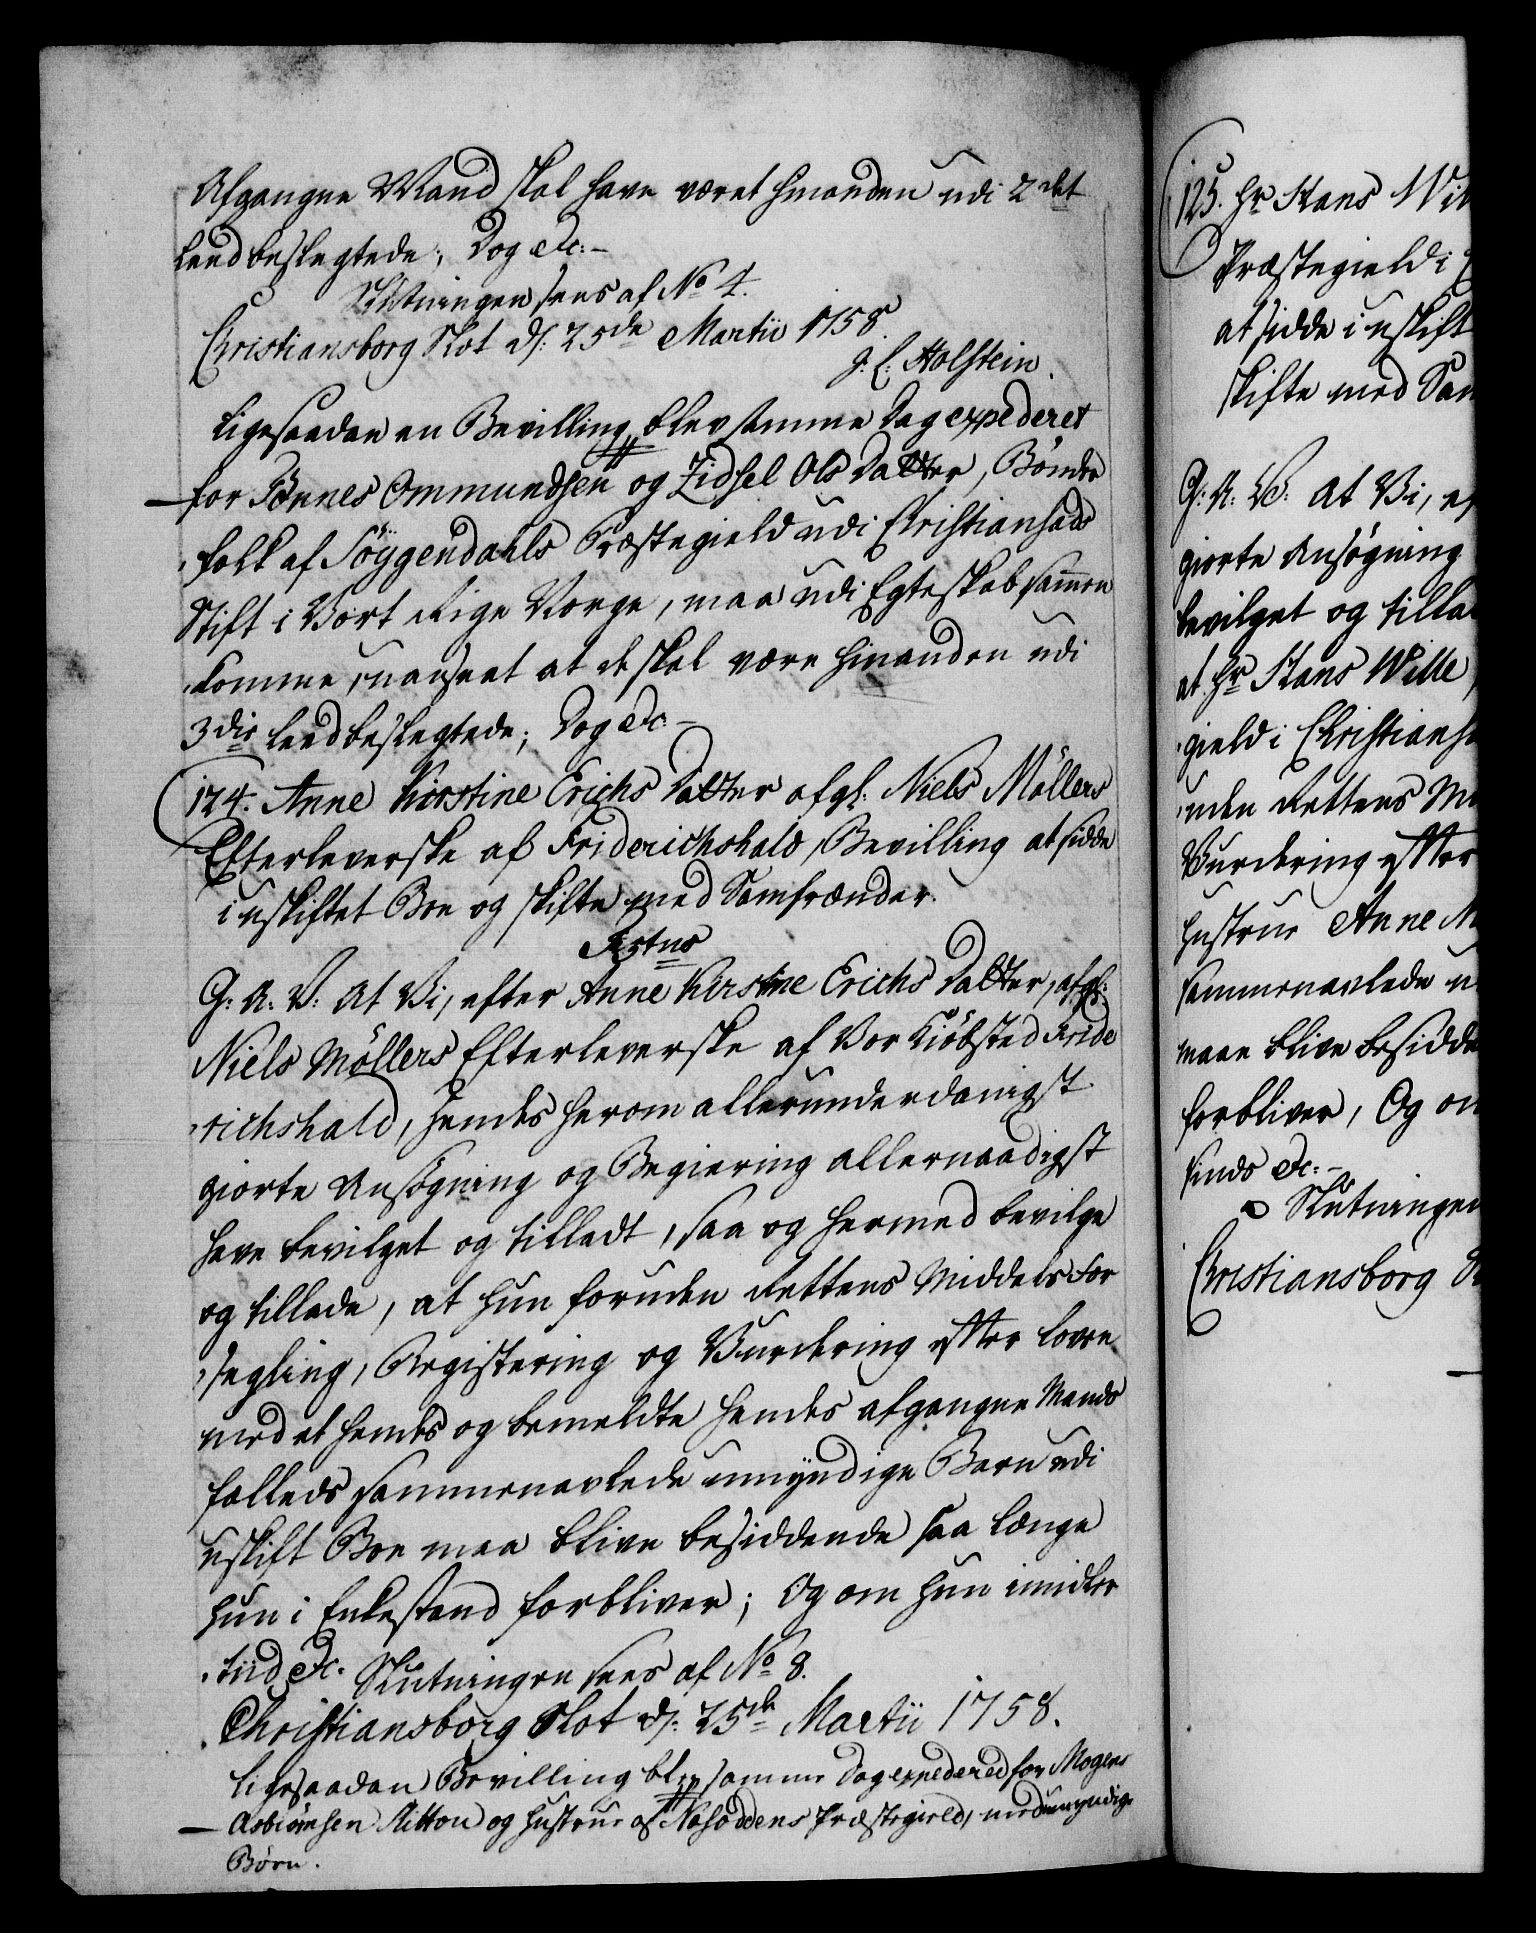 Afgangne Mand skal have været hinanden udi 2det
Leed beslegtede; Dog etc:-
Slutningen sees af No 4.
Christiansborg Slot d: 25de Martii 1758.
J: L: Holstein.
Ligesaadan en Bevilling blev samme Dag expederet
for Tønnes Ommundsen og Zidsel Ols Datter, Bønder
folk af Søggendahls Præstegield udi Christiansads
Stift i Vort Rige Norge, maa udi Egteskab sammen
komme, uanseet at de skal være hinanden udi
3die Leed beslegtede; Dog etc-
124. Anne Kirstine Erichs Datter afgl: Niels Møllers
Efterleverske af Friderichshald, Bevilling at sidde
i uskiftet Boe og skifte med Samfrænder.
G: A: V: At Vi, efter Anne Kirstine Erichs Datter, afgl:
Niels Møllers Efterleverske af Vor Kiøbsted Fride
richshald, hendes herom allerunderdanigst
giorte Ansøgning og Begiering allernaadigst
have bevilget og tilladt, saa og hermed bevilge
og tillade, at hun foruden Rettens Middels For
segling, Registering og Vurdering efter Loven
med et hendes og bemeldte hendes afgangne Mands
fælleds sammenavlede umyndige Barn udi
uskift Boe maa blive besiddende saa længe
hun i Enkestand forbliver; Og om hun imidler
tiid etc. Slutningen sees af No 8.
Christiansborg Slot d: 25de Martii 1758.
Ligesaadan Bevilling blev samme Dag expedered for Mogens
Asbiørnsen Ritton og Hustrue af Næsoddens Præstegield, med umyndige
Børn.
125. Hr Hans Wil
Præstegield i
at sidde i uskift
skifte med Sam
G: A: V: At Vi, ef
giorte Ansøgning
bevilget og tilla
at Hr Hans Wille,
gield i Christiansa
uden Rettens Mi
Vurdering efter
Hustrue Anne M
sammenavlede u
maae blive besidde
forbliver, Og om
sinds etc:-
Slutningen
Christiansborg Sl